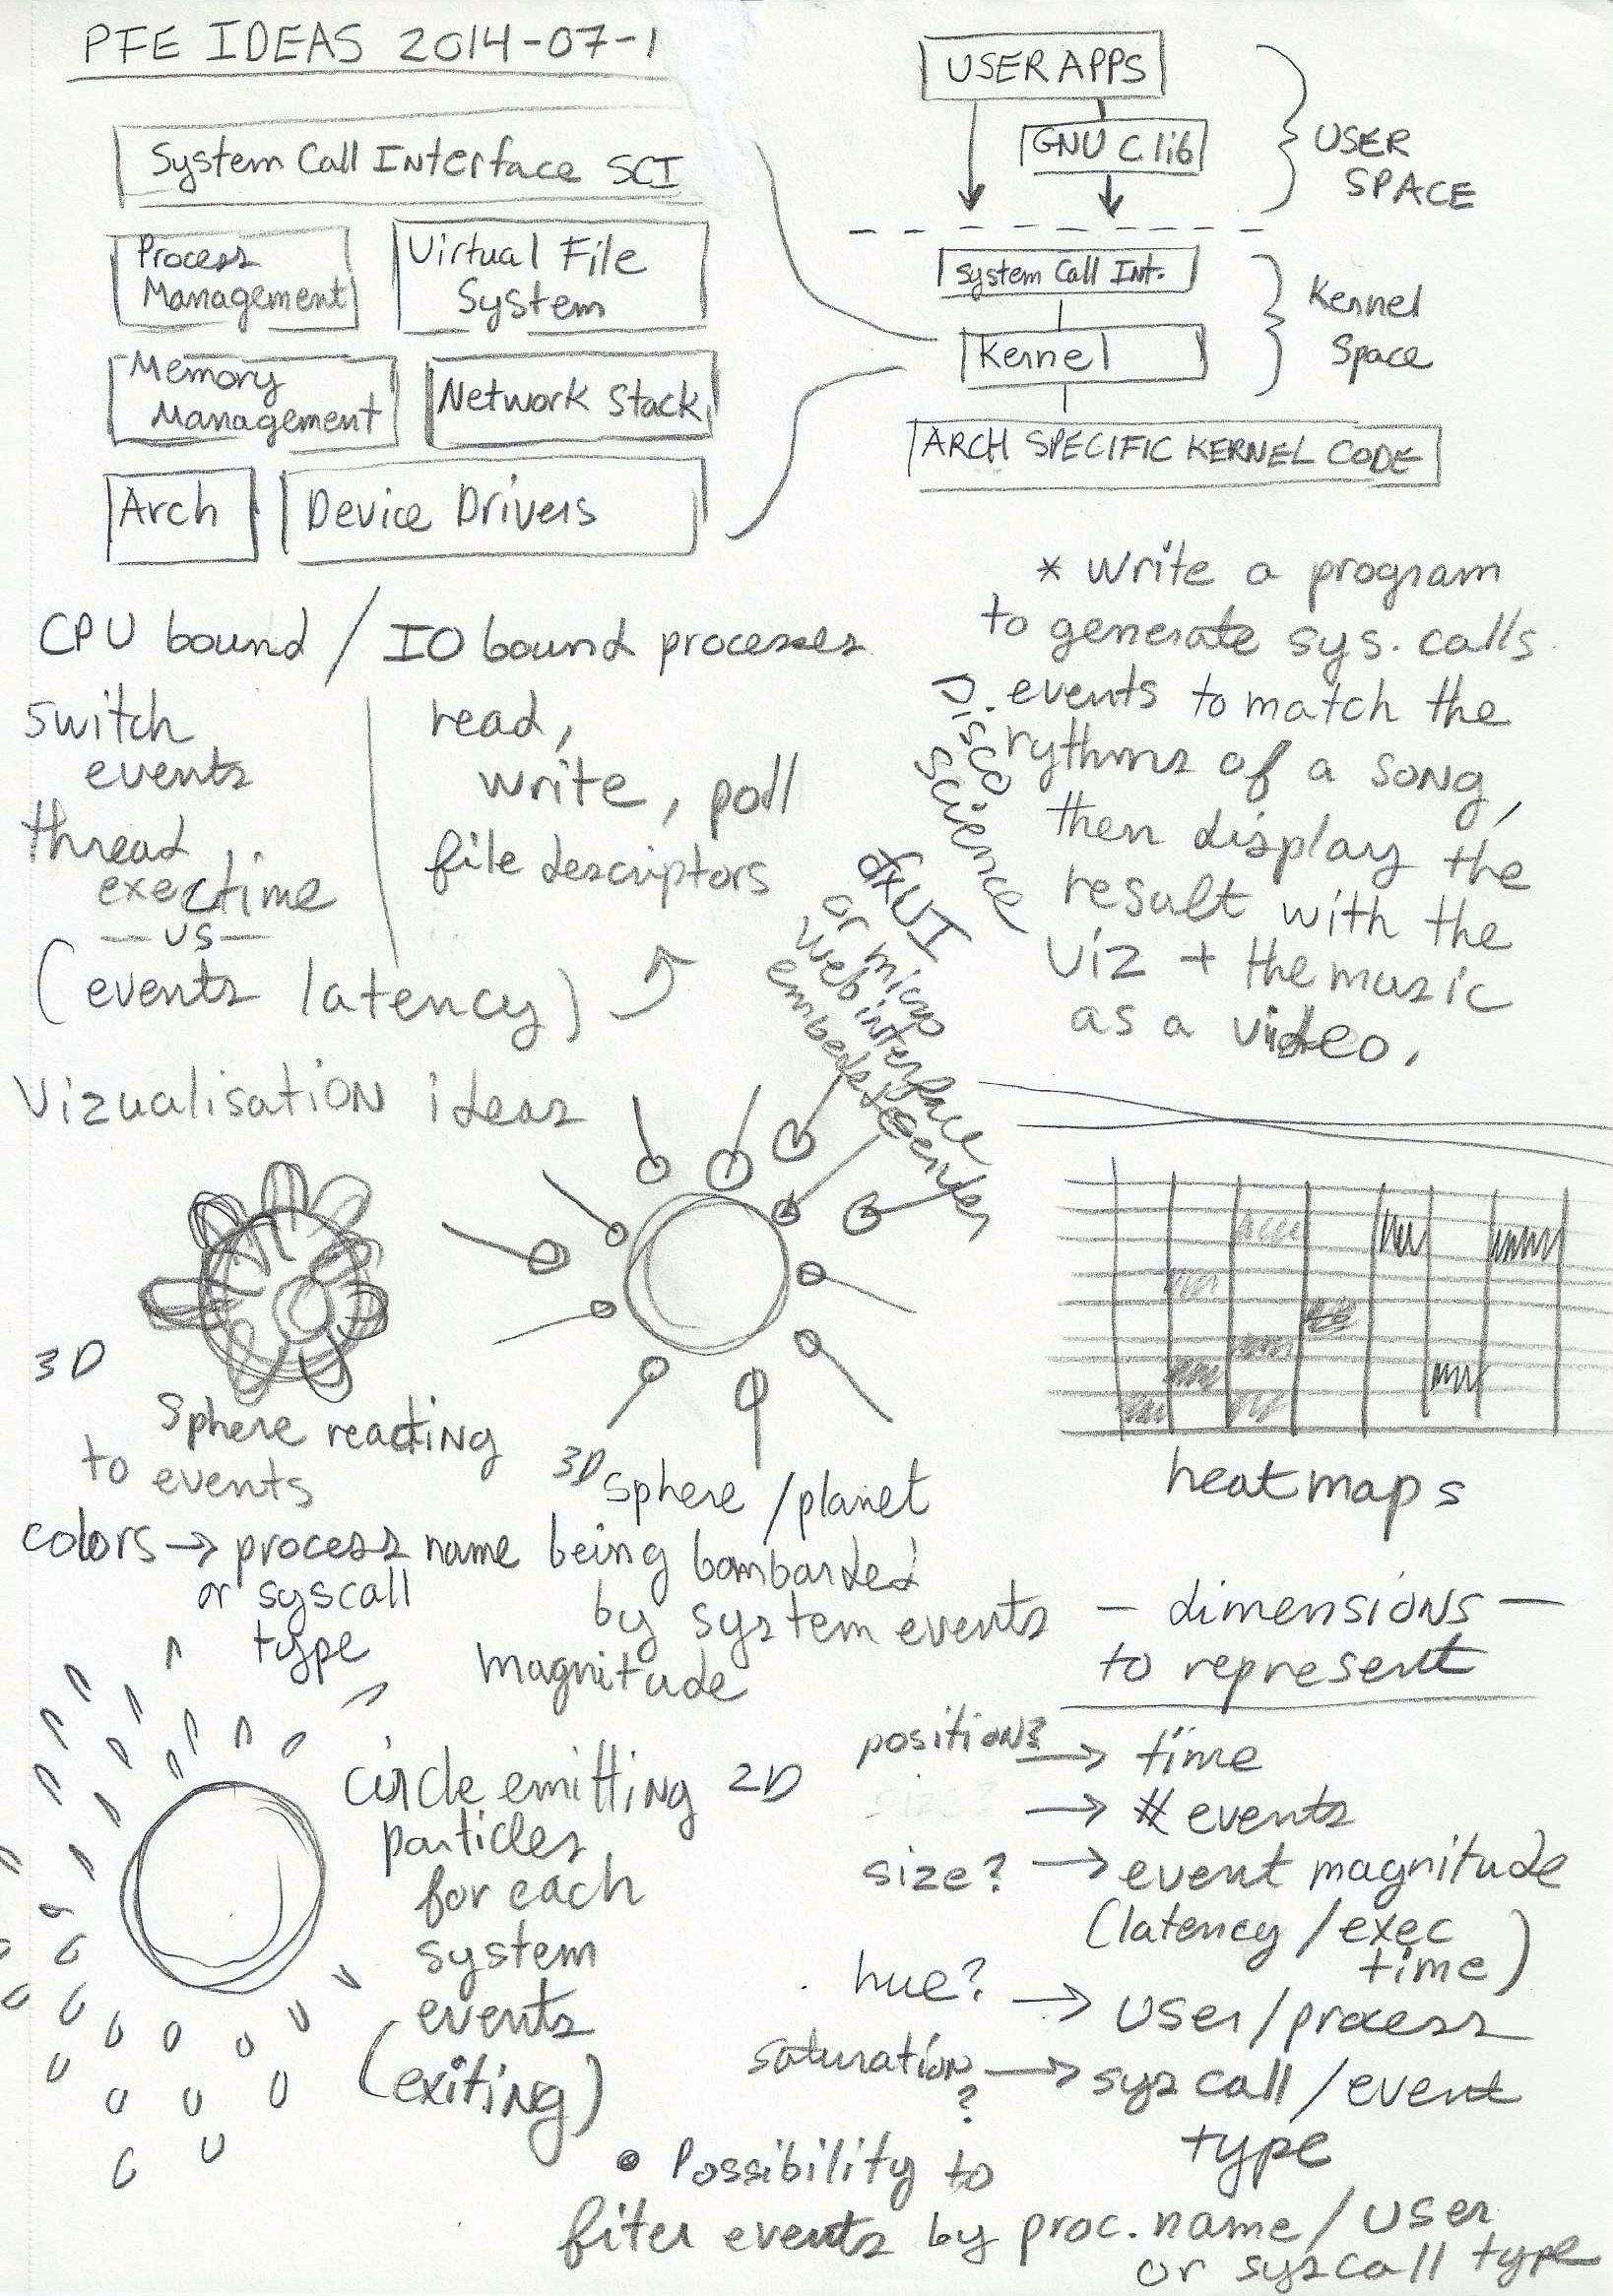 PFE IDEAS 2014-07-1
System Call Interface SCI
Process
Management
Virtual File
System
Memory
Management
Network Stack
Arch
Device Drivers
USER APPS
GNU C lib
USER
SPACE
System Call Int.
Kernel
Kernel
Space
ARCH SPECIFIC KERNEL CODE
CPU bound / IO bound processes
switch
events
thread
exec time
— vs —
(events latency)
read,
write, poll
file descriptors
* write a program
to generate sys. calls
events to match the
rythms of a song,
then display the
result with the
viz + the music
as a video.
Disco
science
or micro
web interface
embedded server
Vizualisation ideas
3D
Sphere reacting
to events
colors → process name
or syscall
type
3D Sphere / planet
being bombarded
by system events
magnitude
heatmaps
circle emitting 2D
particles
for each
system
events
(exiting)
— dimensions —
to represent
position? → time
→ # events
size? → event magnitude
(latency / exec
time)
hue? → user/process
saturation → syscall / event
?
type
• Possibility to
fiter events by proc. name / user
or syscall type